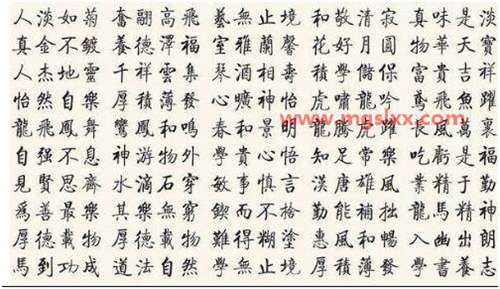 人淡如菊 奮翮高飛 藝無止境 和敬清寂 真味是淡
真金不鍍 養德澤福 室雅蘭馨 花好月圓 物華天寶
人杰地靈 千祥雲集 琴酒相壽 積學儲保 富貴吉祥
怡然自樂 厚積薄發 心曠神怡 虎嘯龍吟 鳶飛魚躍
龍飛鳳舞 鸞鳳和鳴 春和景明 龍騰虎躍 長風萬裏
www.mgslxx.com
自强不息 神游物外 學貴心悟 知足常樂 吃虧是福
見賢思齊 水滴石穿 敏事慎言 漢唐雄風 業精于勤
爲善最樂 其樂無窮 而不捨 勤能補拙 龍馬精神
厚德載物 厚德載物 難得糊塗 惠風和暢 入幽出朗
馬到功成 道法自然 學無止境 厚積薄發 學書養志